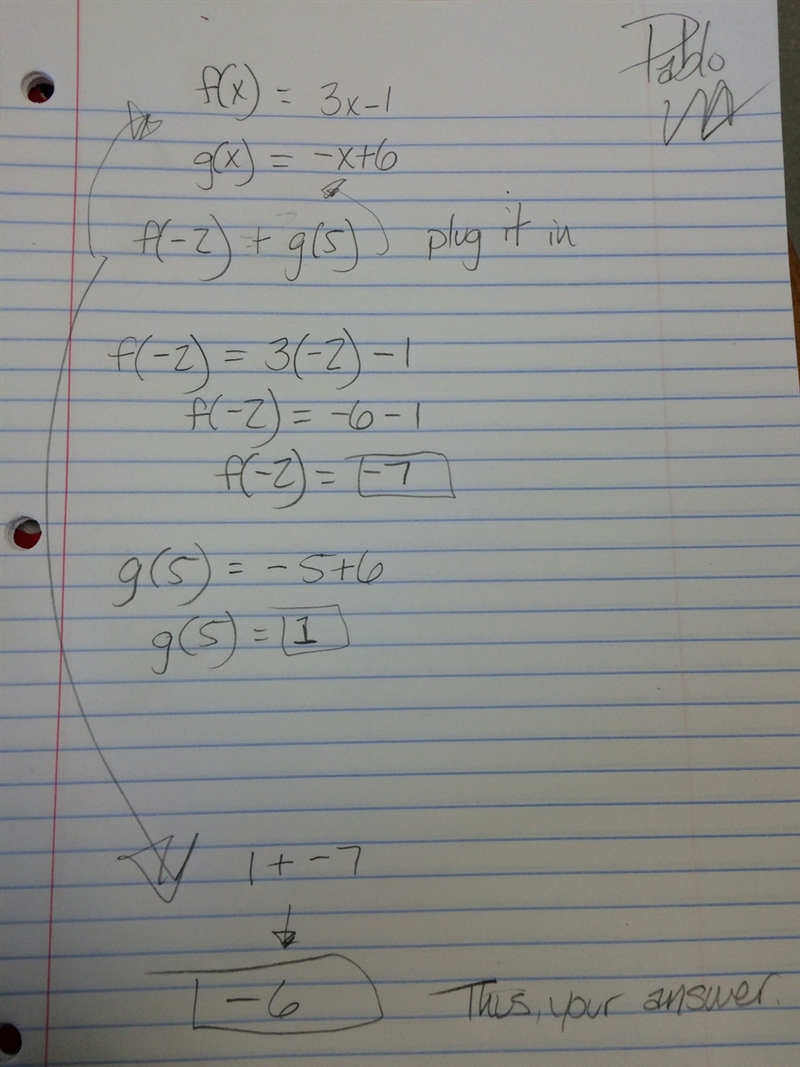 Pablo
f(x) = 3x-1
g(x) = -x+6
f(-2) + g(5) plug it in
f(-2) = 3(-2) - 1
f(-2) = -6 - 1
f(-2) = -7
g(5) = -5+6
g(5) = 1
1 + -7
-6 Thus, your answer.